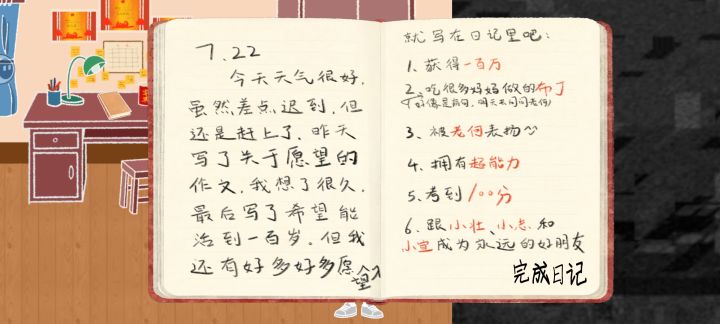 7.22
今天天气很好，
虽然差点迟到，但
还是赶上了，昨天
写了关于愿望的
作文，我想了很久，
最后写了希望能
活到一百岁，但我
还有好多好多愿望，
就写在日记里吧：
1、获得一百万
2、吃很多好好做的布丁
3、被老何表扬～
4、拥有超能力
5、考到100分
6、跟小壮、小志和
小宣成为永远的好朋友
完成日记